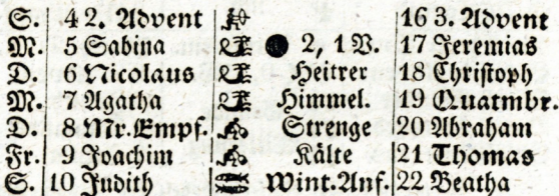 S. 4 2. Advent 16 3. Advent
M. 5 Sabina ● 2, 1 V. 17 Jeremias
D. 6 Nicolaus Heitrer 18 Christoph
M. 7 Agatha Himmel. 19 Quatmbr.
D. 8 Mr. Empf. Strenge 20 Abraham
Fr. 9 Joachim Kälte 21 Thomas
S. 10 Judith Wint. Anf. 22 Beatha